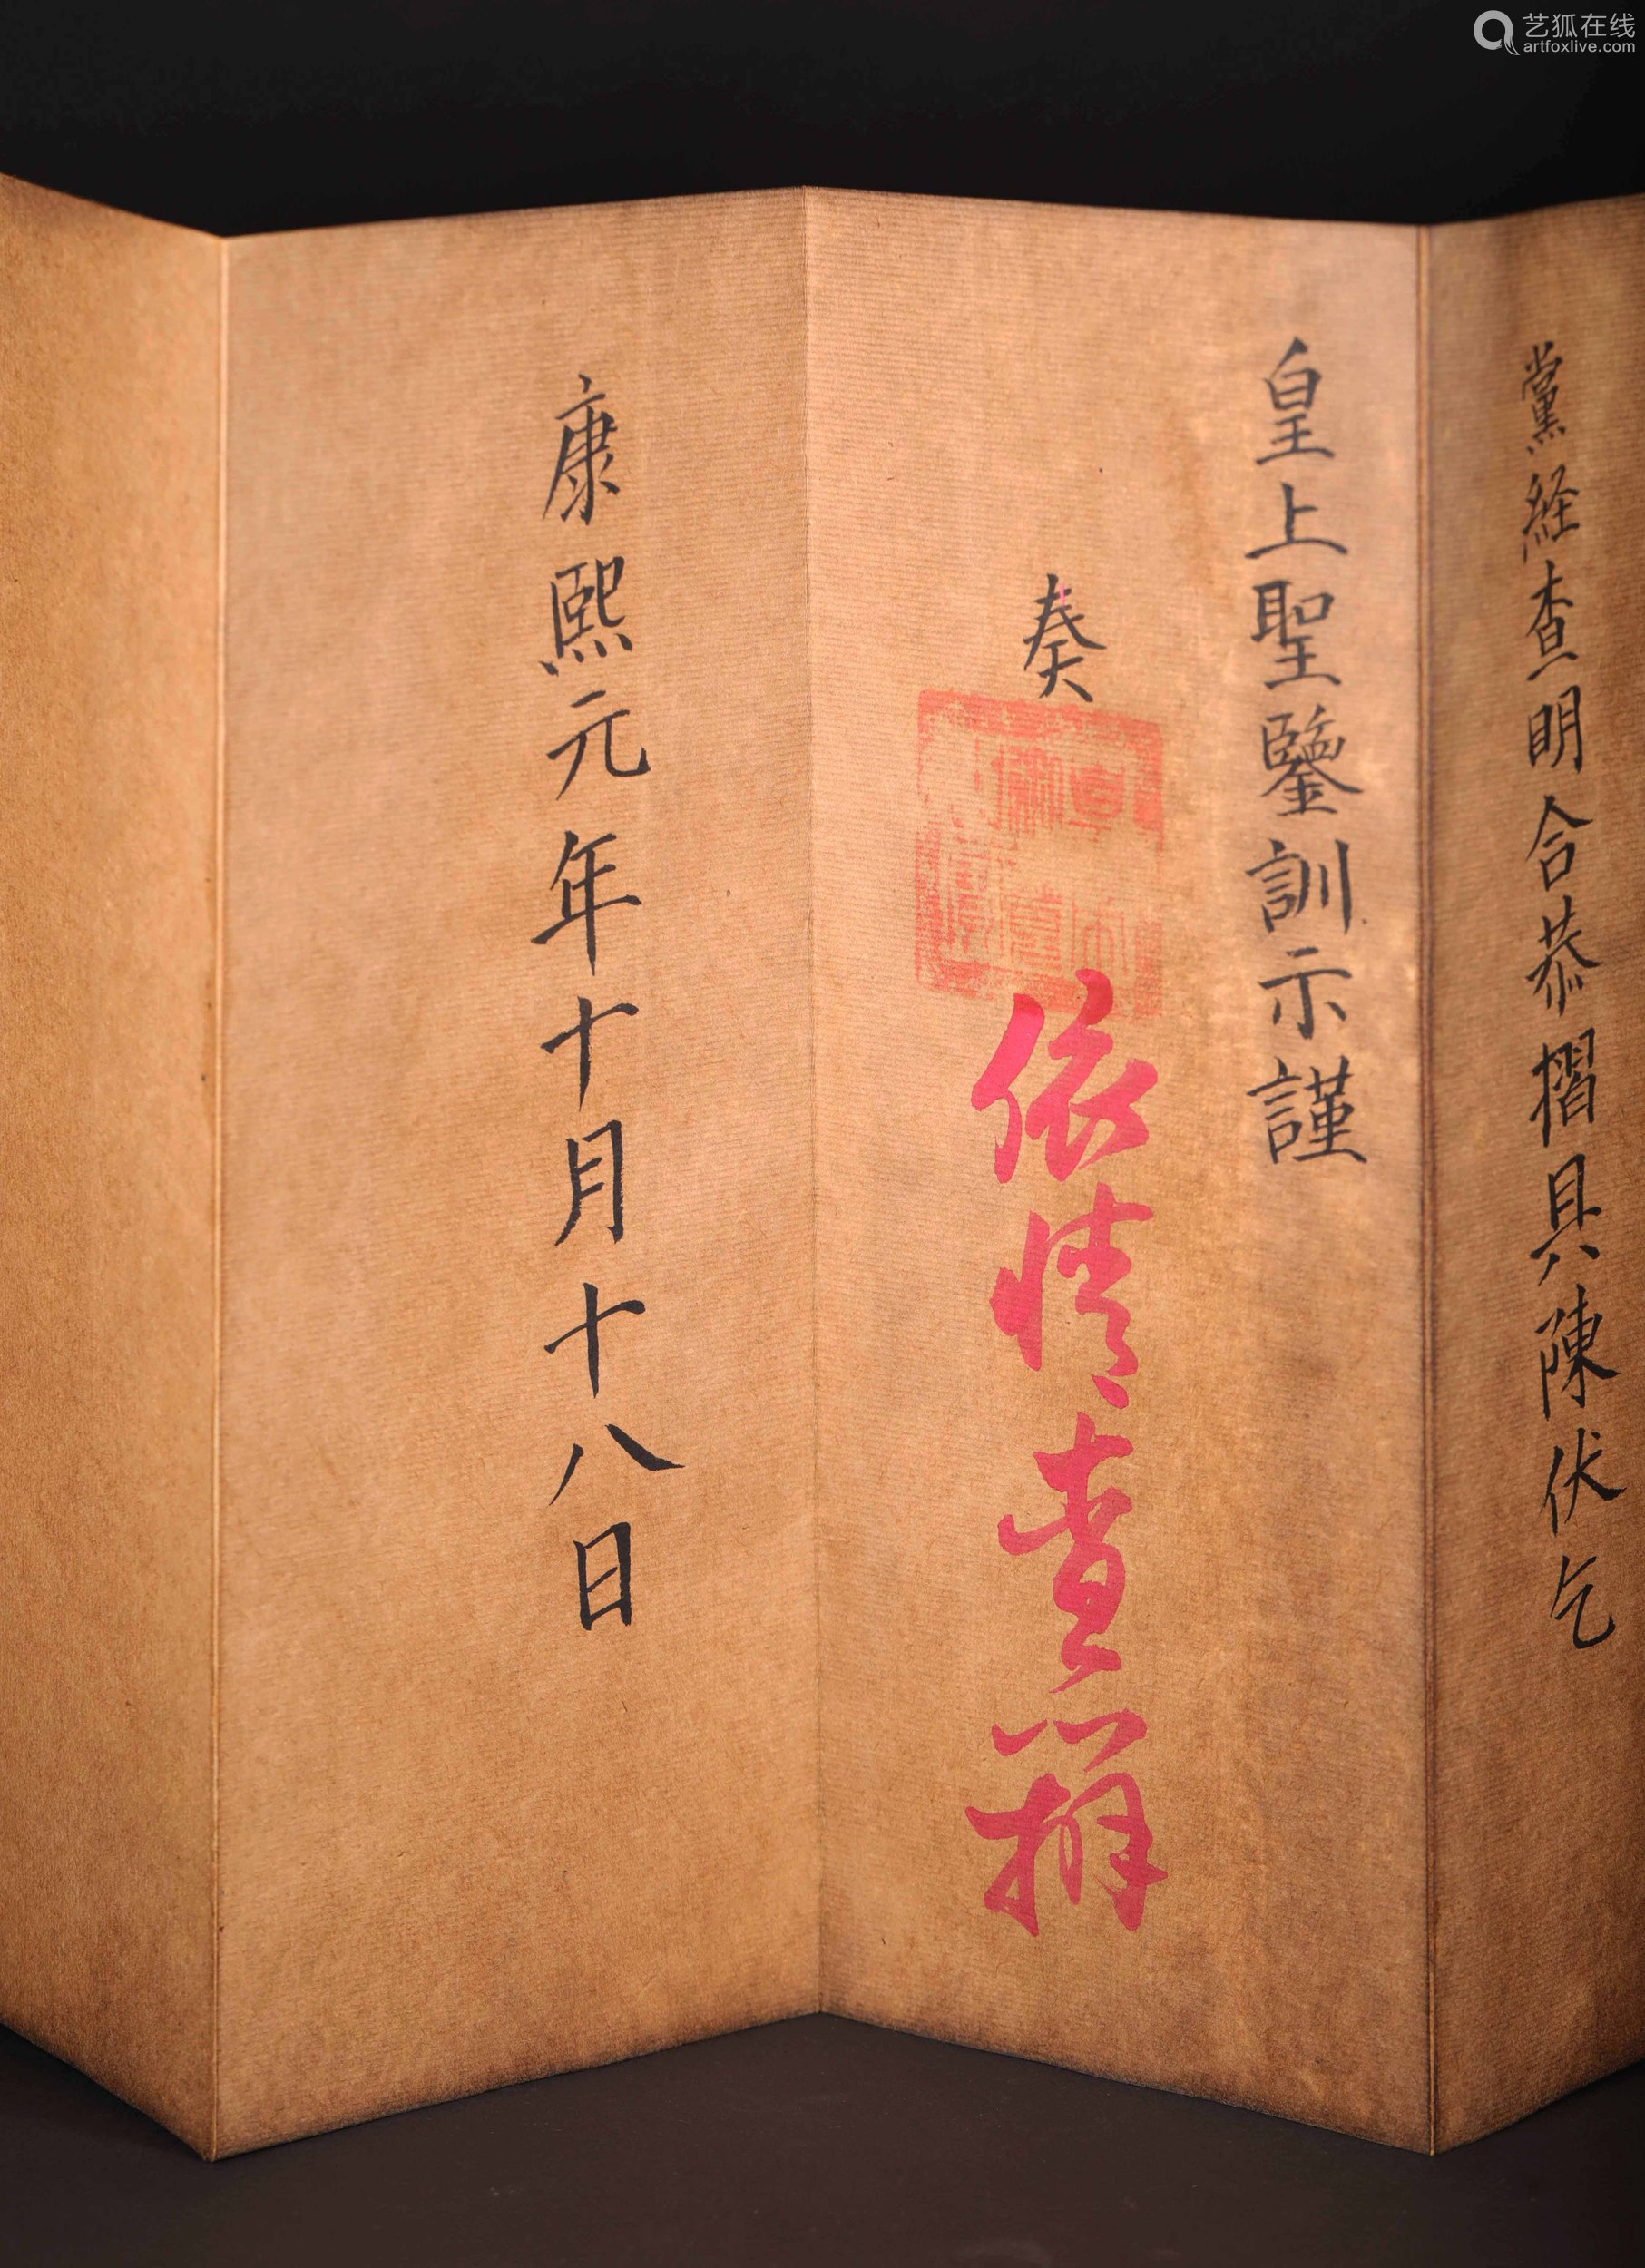 艺狐在线
artfoxlive.com
黨経查明合恭摺具陳伏乞
皇上聖鑒訓示謹
奏
依情查辦
康熙元年十月十八日